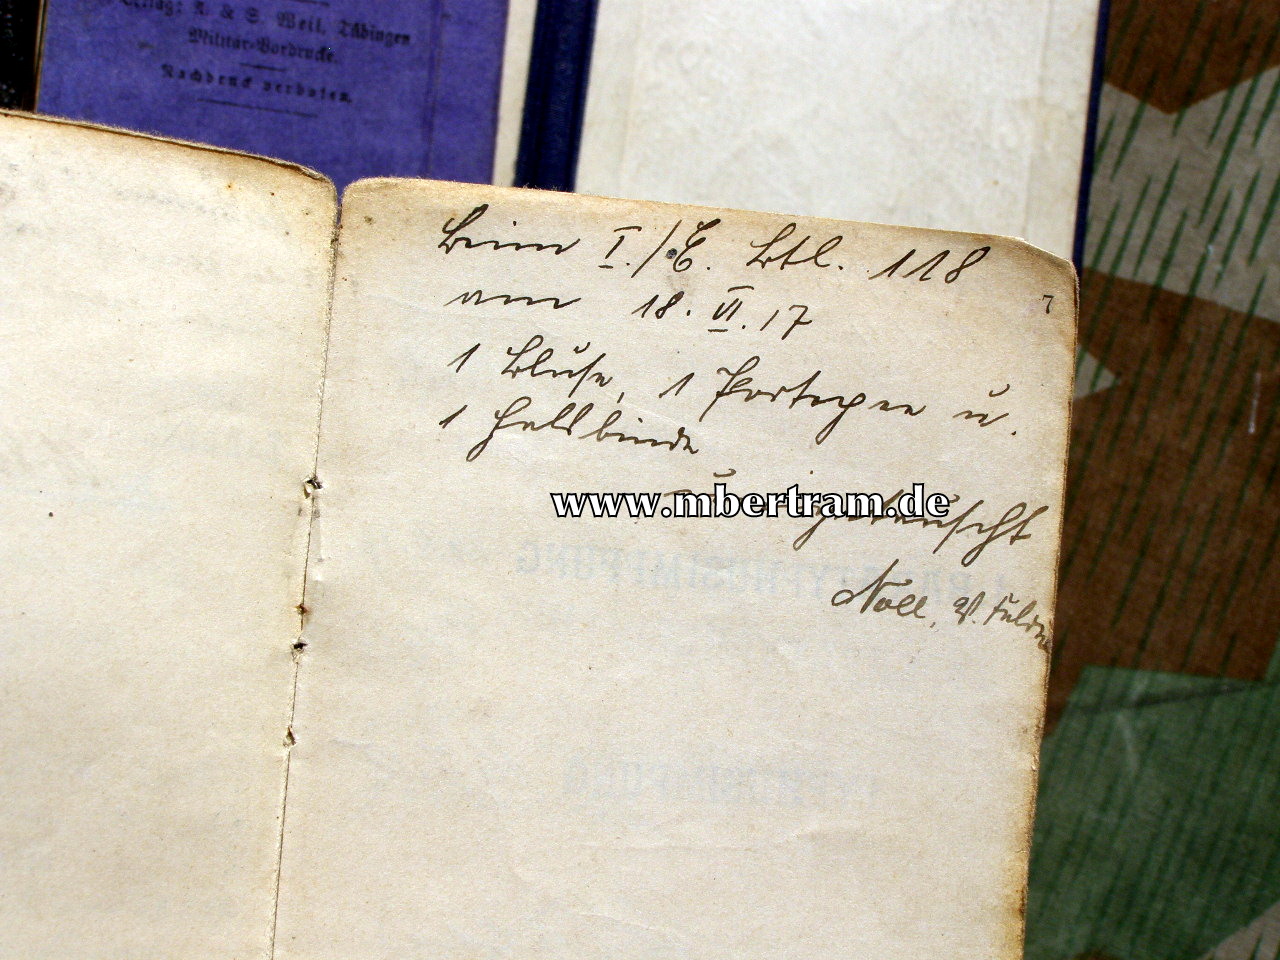 Verlag: A. & S. Weil, Tübingen
Militär-Vordrucke.
Nachdruck verboten.
Beim I./E. Btl. 118
7
am 18. VI. 17
1 Bluse, 1 Portepee u.
1 Halsbinde
www.mbertram.de
getauscht
Noll,